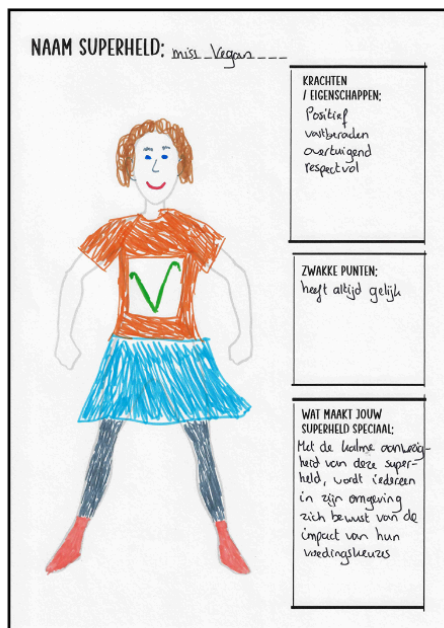 NAAM SUPERHELD: miss Vegan
KRACHTEN
/ EIGENSCHAPPEN:
Positief
vastberaden
overtuigend
respectvol
V
ZWAKKE PUNTEN:
heeft altijd gelijk
WAT MAAKT JOUW
SUPERHELD SPECIAAL:
Met de kalme aanwezig-
heid van deze super-
held, wordt iedereen
in zijn omgeving
zich bewust van de
impact van hun
voedingskeuzes